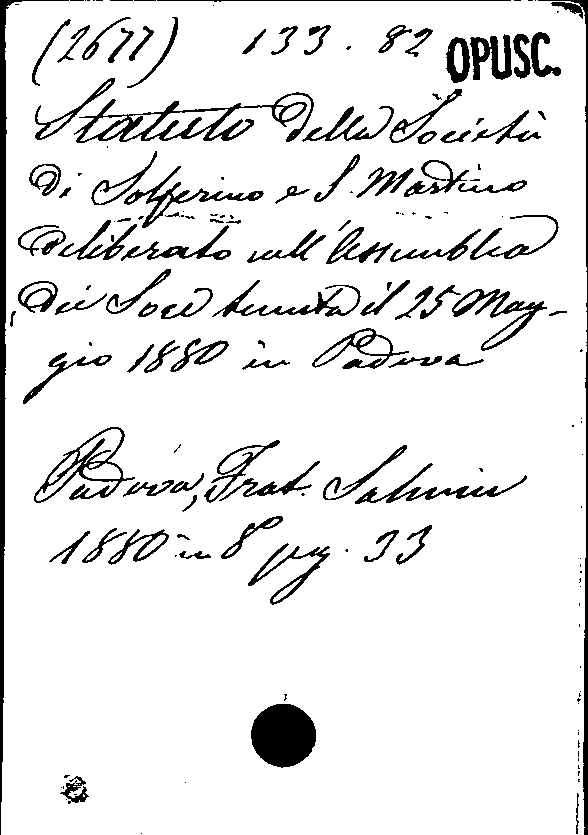 (2677) 133.82 OPUSC.
Statuto della Società
di Solferino e S. Martino
deliberato nell'Assemblea
dei Soci tenuta il 25 Mag-
gio 1880 in Padova
Padova, Frat. Salmin
1880 in 8° pag. 33